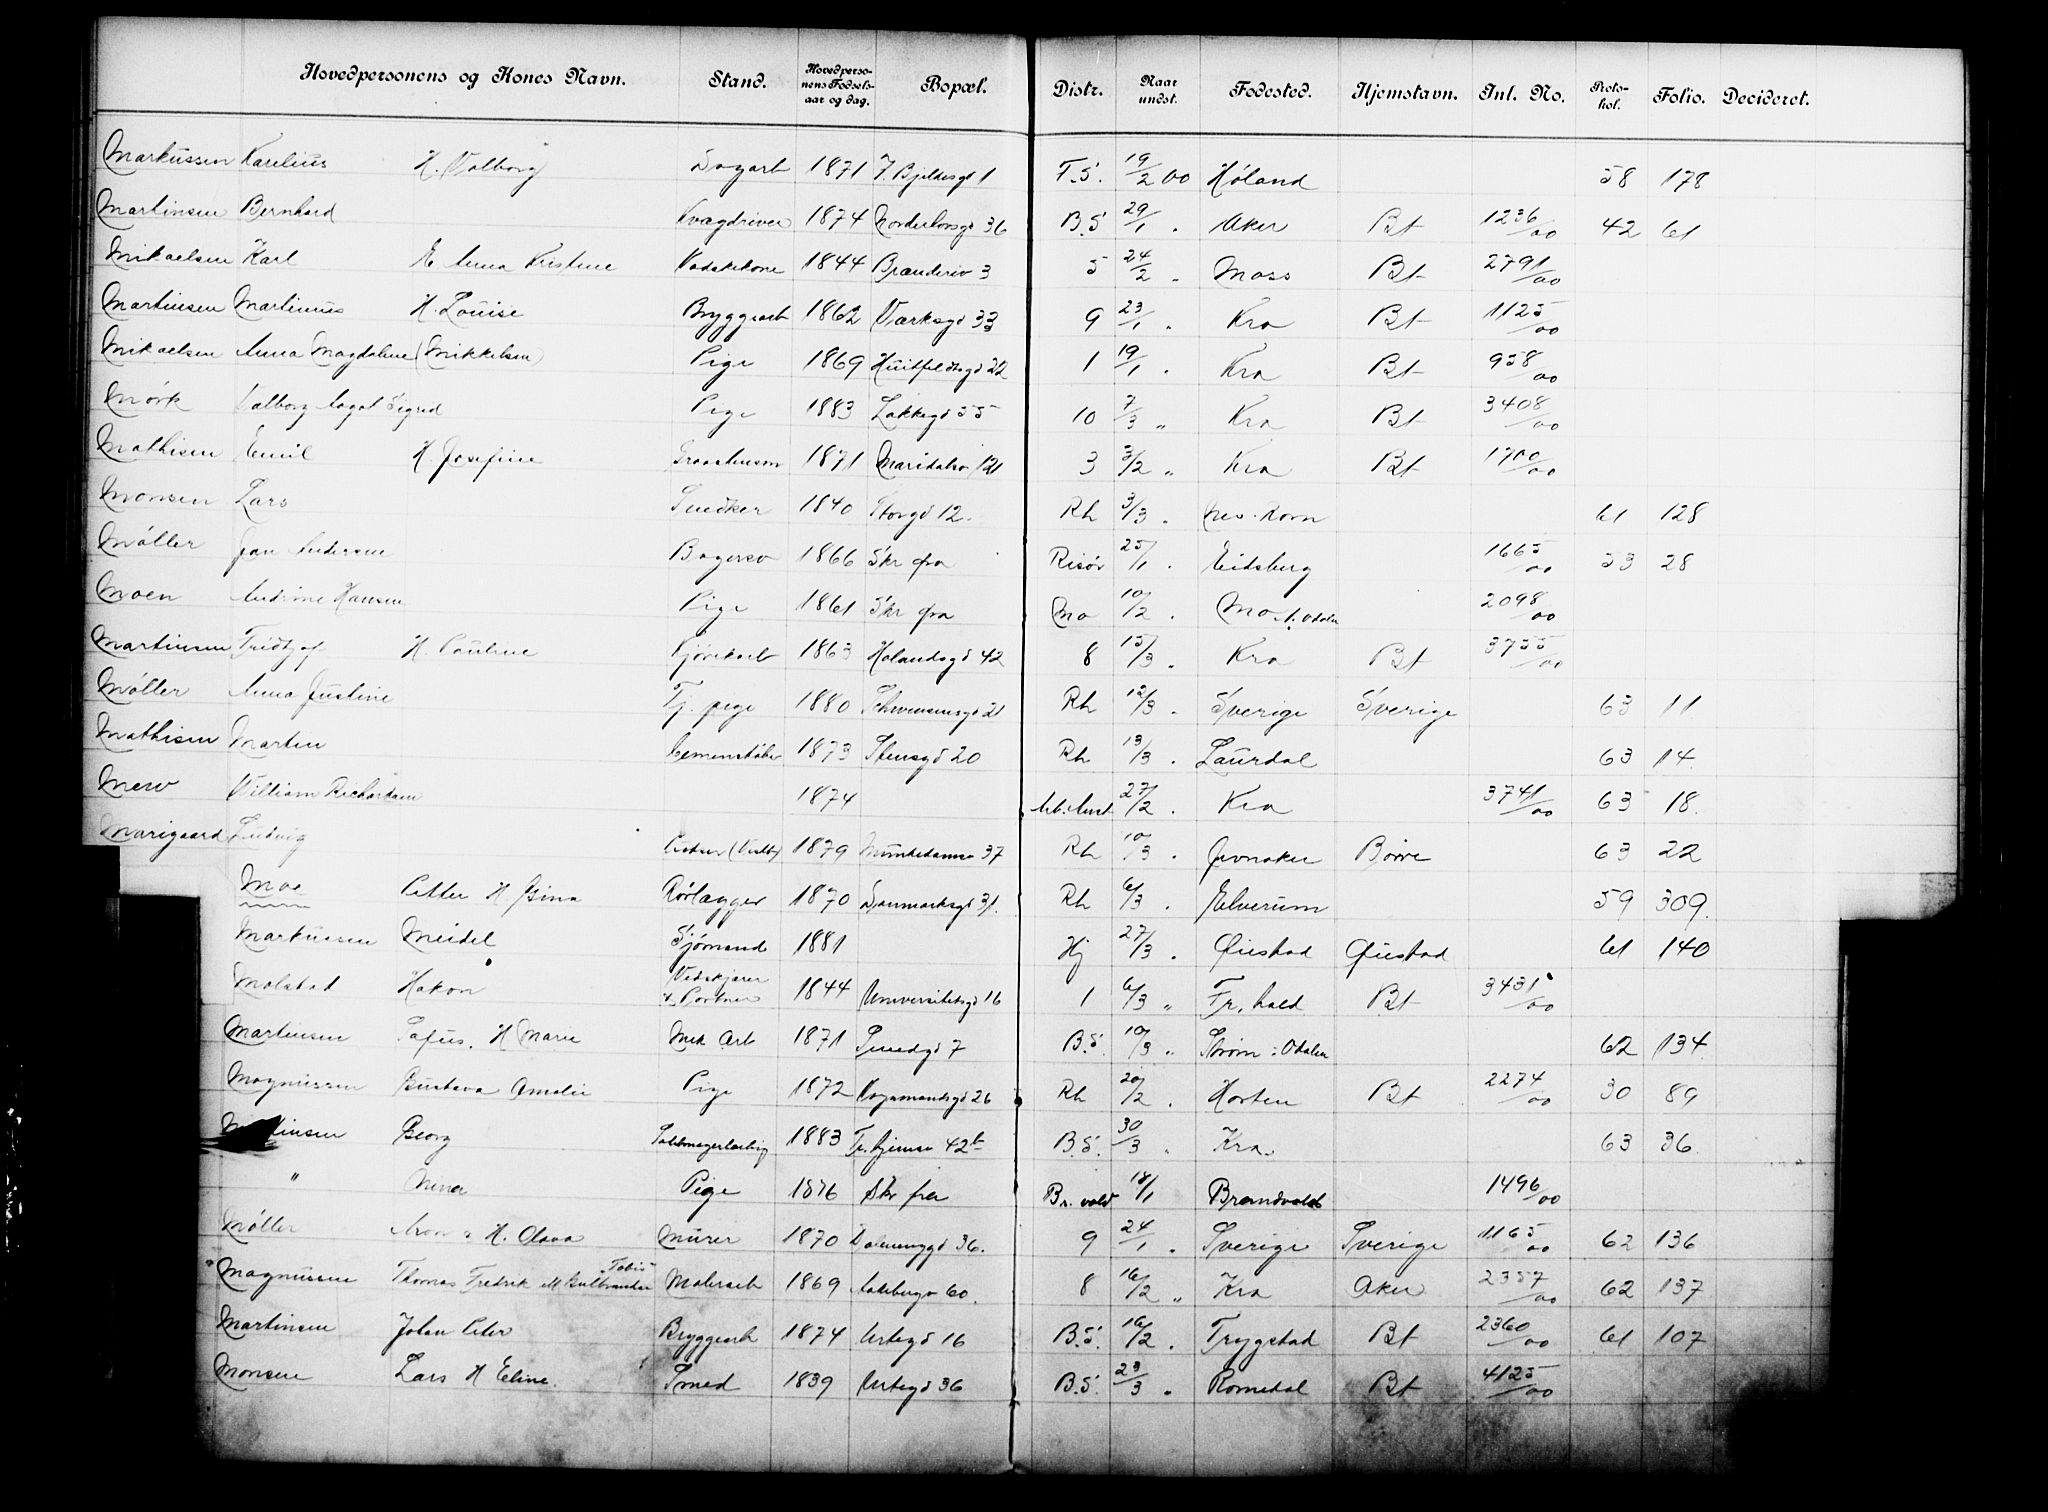 Hovedpersonens og Kones Navn. Stand. Hovedpersonens Fødselsaar og dag. Bopæl. Distr. Naar undst. Fødested. Hjemstavn. Int. No. Protokol. Folio. Decideret.
Markussen Karelius H. Valborg Dagarb 1871 J. Bjeldesgd 1 F.S. 19/2 00 Høland 58 178
Martinsen Bernhard Kvægdriver 1874 Norderhovsgd 36 B.S 29/1 . Aker Bt 1236/00 42 61
Mikaelsen Karl E Anna Kristine Vadskekone 1844 Brænderiv 3 5 24/2 „ Moss Bt 2791/00
Martinsen Martinius H. Louise Bryggearb 1862 Værksgd 33 9 23/1 „ Kra Bt 1125/00
Mikaelsen Anna Magdalene (Mikkelsen) Pige 1869 Huitfeldtsgd 22 1 19/1 . Kra Bt 958/00
Mørk Valborg Aagot Sigrid Pige 1883 Lakkegd 55 10 7/3 „ Kra Bt 3408/00
Mathisen Emil H. Josefine 1871 Maridalsv 121 3 3/2 „ Kra Bt 1700/00
Monsen Lars Snedker 1840 Storgd 12. Rh 3/3 . Nes. Rom 61 128
Møller Jan Andersen Bagersv 1866 Skr fra Risør 25/1 . Eidsberg 1665/00 53 28
Moen Andrine Hansen Pige 1861 Skr fra Mo 10/2 . Mo N. Odalen 2098/00
Martinsen Fridtjof H. Pauline Kjørekarb 1863 Hølandsgd 42 8 15/3 „ Kra Bt 3755/00
Møller Anna Justine Tj. pige 1880 Schwensensgd 21 Rh 12/3 . Sverige Sverige 63 11
Mathisen Martin Cementstøber 1873 Stensgd 20 Rh 13/3 . Laurdal 63 14.
Mew William Richardsen 1874 Arb. Anst 27/2 . Kra 3741/00 63 18.
Marigaard Ludvig 1879 Munkedamsv 37 Rh 10/3 . Jevnaker Borre 63 22
Moe Petter H. Gina Rørlægger 1870 Danmarksgd 31. Rh 6/3 . Elverum 59 309.
Markussen Meidel Sjømand 1881 Hj 27/3 . Øiestad Øiestad 61 140
Molstad Hakon Vedskjærer & Portner 1844 Universitetsgd 16 1 6/3 „ Fr.hald Bt 3431/00
Martinsen Sofus. H Marie Mek Arb 1871 Smedgd 7 B.S. 10/3 „ Strøm i Odalen 62 134.
Magnussen Gustava Amalie Pige 1872 Vogmandsgd 26 Rh 20/2 . Horten Bt 2274/00 30 89
Martinsen Georg Saldmagerlærling 1883 Tr.hjemsv 42b B.S. 30/3 „ Kra. 63 36.
" Anna Pige 1876 Skr fra Br. vold 18/1 Brandvold 1496/00
Møller Aron & H. Olava Murer 1870 Dalenenggd 36. 9 24/1 „ Sverige Sverige 1165/00 62 136
Magnussen Thomas Fredrik M Gulbrandine "Tobis" Malerarb 1869 Aakebergv 60. 8 16/2 „ Kra Aker 2357/00 62 137
Martinsen Johan Peter Bryggearb 1874 Urtegd 16 B.S. 16/2 . Trygstad Bt 2360/00 61 107
Monsen Lars H Eline. Smed 1839 Urtegd 36 B.S. 23/3 „ Romedal Bt 4125/00